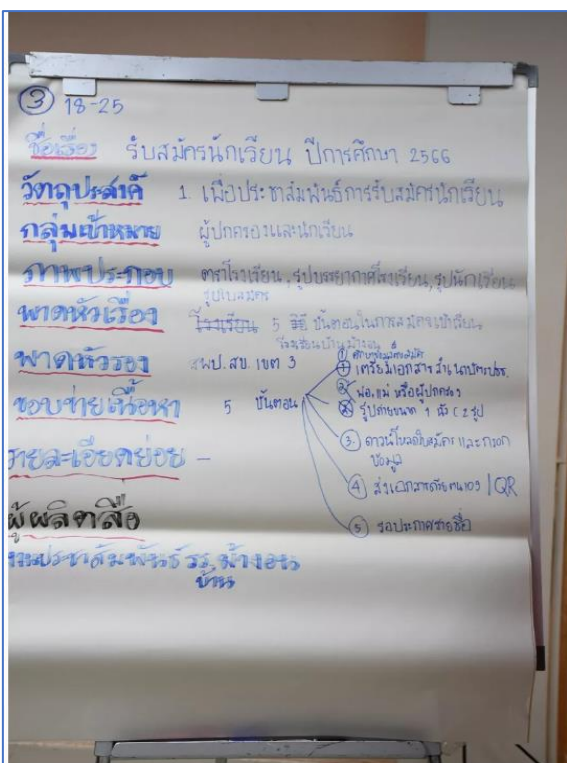 ③ 18-25
ชื่อเรื่อง รับสมัครนักเรียน ปีการศึกษา 2566
วัตถุประสงค์ 1. เพื่อประชาสัมพันธ์การรับสมัครนักเรียน
กลุ่มเป้าหมาย ผู้ปกครองและนักเรียน
ภาพประกอบ ตราโรงเรียน, รูปบรรยากาศโรงเรียน, รูปนักเรียน
รูปใบสมัคร
พาดหัวเรื่อง โรงเรียน 5 วิธี ขั้นตอนในการสมัครเข้าเรียน
พาดหัวรอง สพป. สข. เขต 3
ขอบข่ายเนื้อหา 5 ขั้นตอน
①
เตรียมเอกสาร สำเนาบัตรปชช.
② พ่อ, แม่ หรือผู้ปกครอง
รูปถ่ายขนาด 1 นิ้ว (2 รูป
③ ดาวน์โหลดใบสมัคร และกรอก
ข้อมูล
④ ส่งเอกสารด้วยตนเอง / QR
⑤ รอประกาศรายชื่อ
รายละเอียดย่อย -
ผู้ผลิตสื่อ
งานประชาสัมพันธ์ รร. ม้างอน
บ้าน